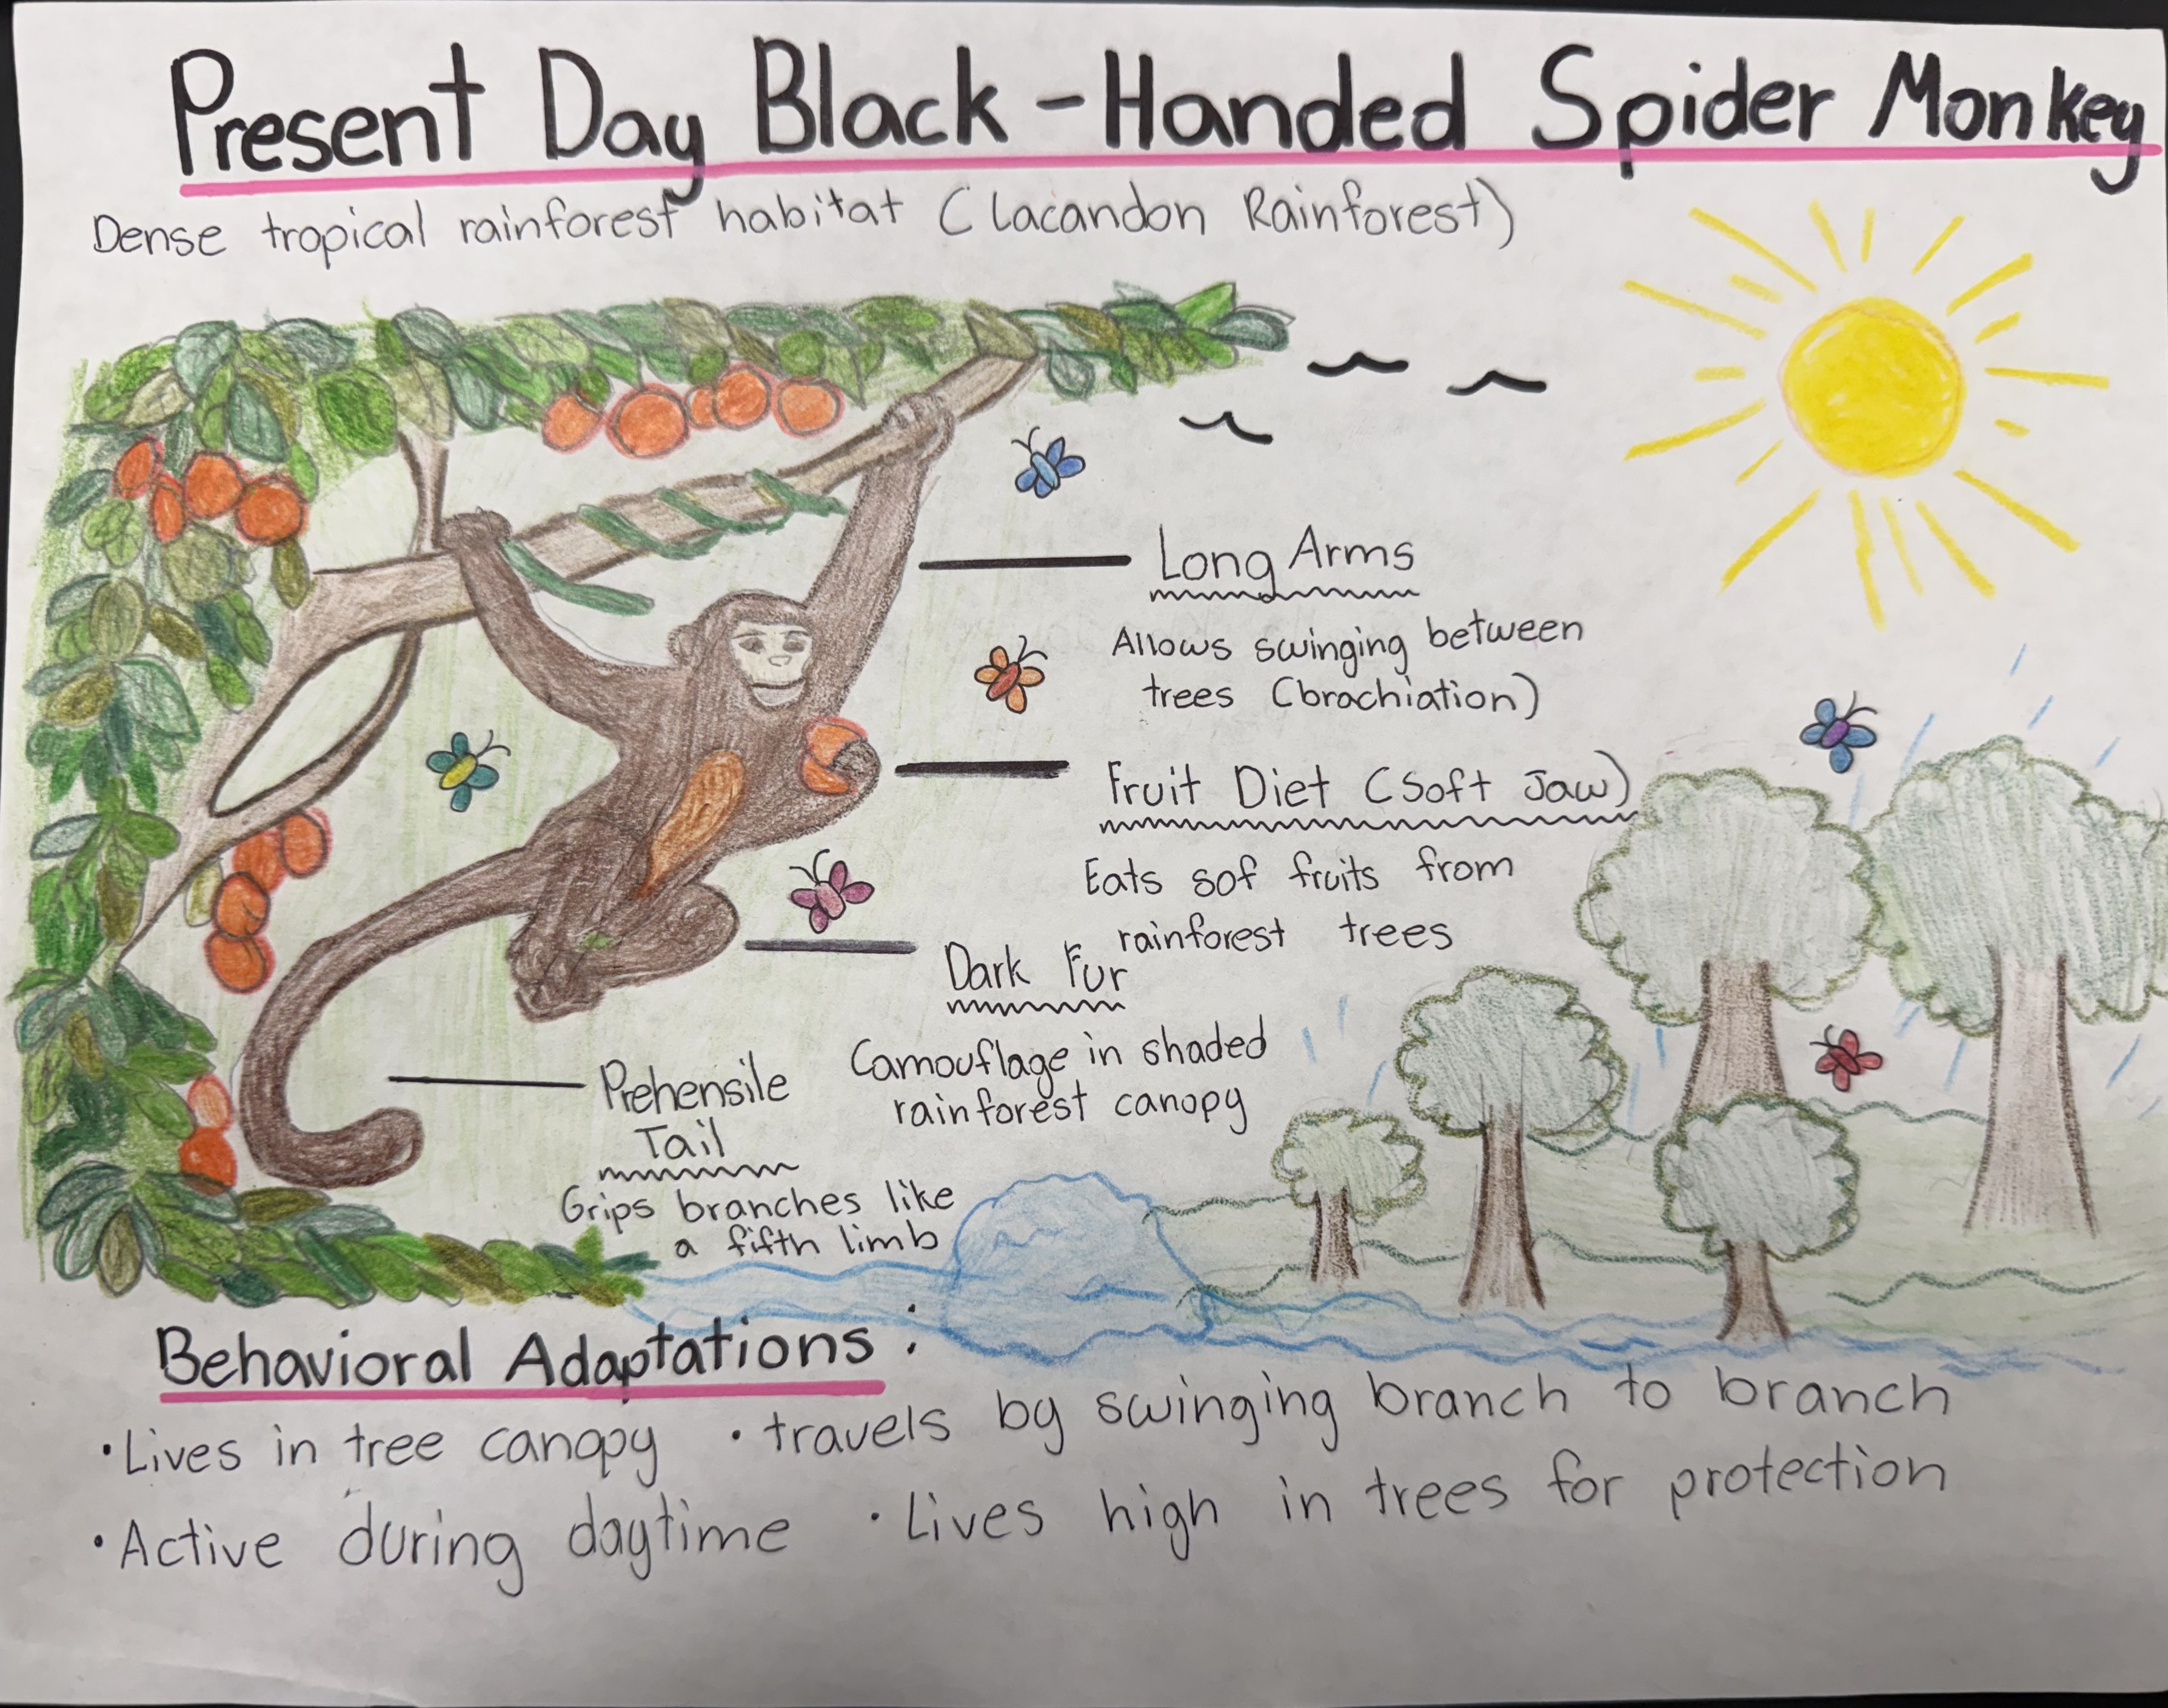 Present Day Black-Handed Spider Monkey
Dense tropical rainforest habitat (Lacandon Rainforest)
Long Arms
Allows swinging between
trees (brachiation)
Fruit Diet (Soft Jaw)
Eats sof fruits from
rainforest trees
Dark Fur
Camouflage in shaded
rainforest canopy
Prehensile
Tail
Grips branches like
a fifth limb
Behavioral Adaptations:
•Lives in tree canopy •travels by swinging branch to branch
•Active during daytime •Lives high in trees for protection